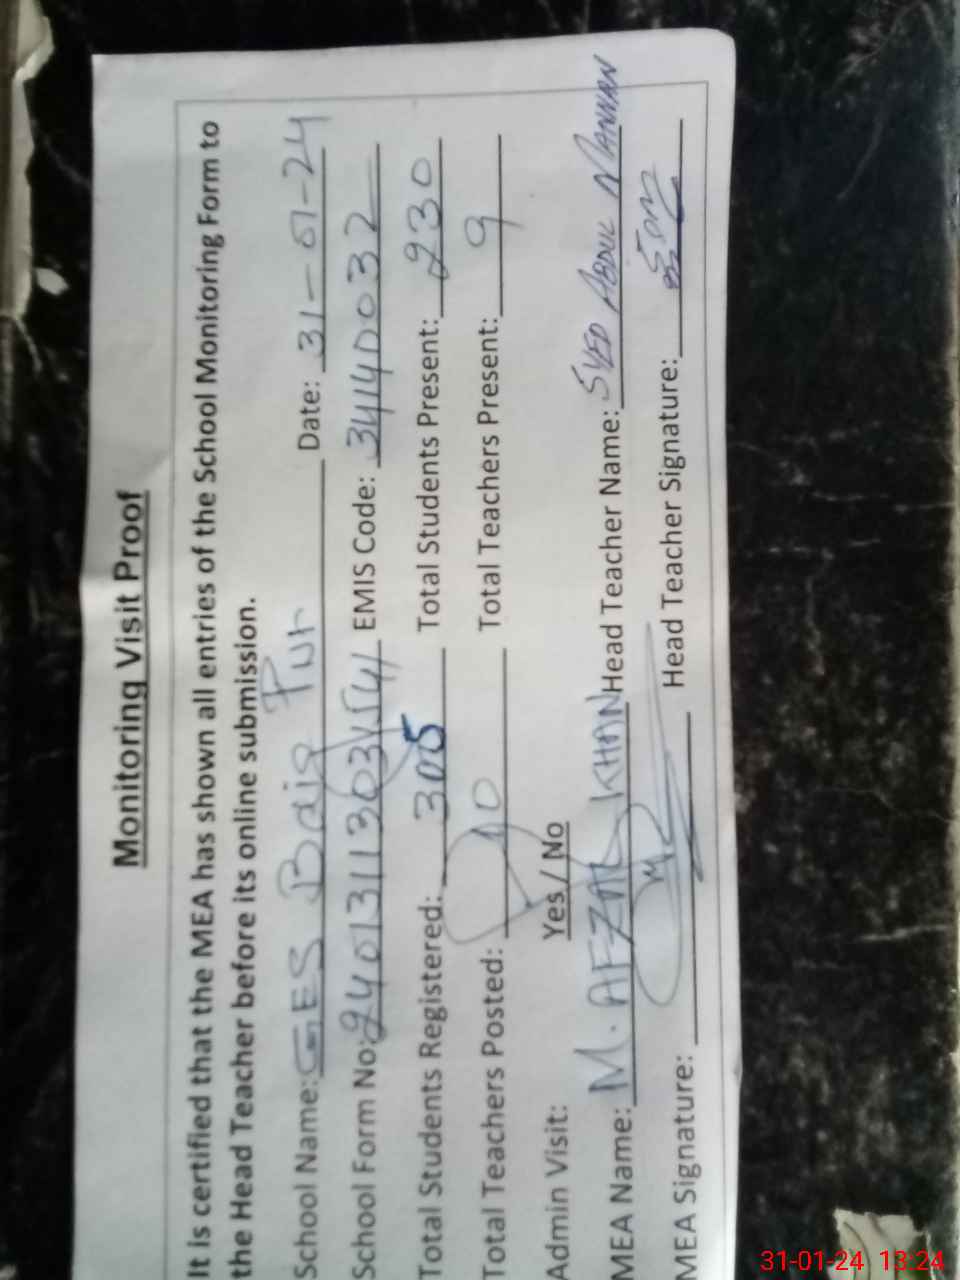 Monitoring Visit Proof
It is certified that the MEA has shown all entries of the School Monitoring Form to
the Head Teacher before its online submission.
School Name: GES Baig Pur Date: 31-01-24
School Form No: EMIS Code: 34140032
Total Students Registered: 305 Total Students Present: 230
Total Teachers Posted: 10 Total Teachers Present: 9
Admin Visit: Yes / No
MEA Name: M. AFZAL KHAN Head Teacher Name: SYED ABDUL MANNAN
MEA Signature: Head Teacher Signature:
31-01-24 13:24